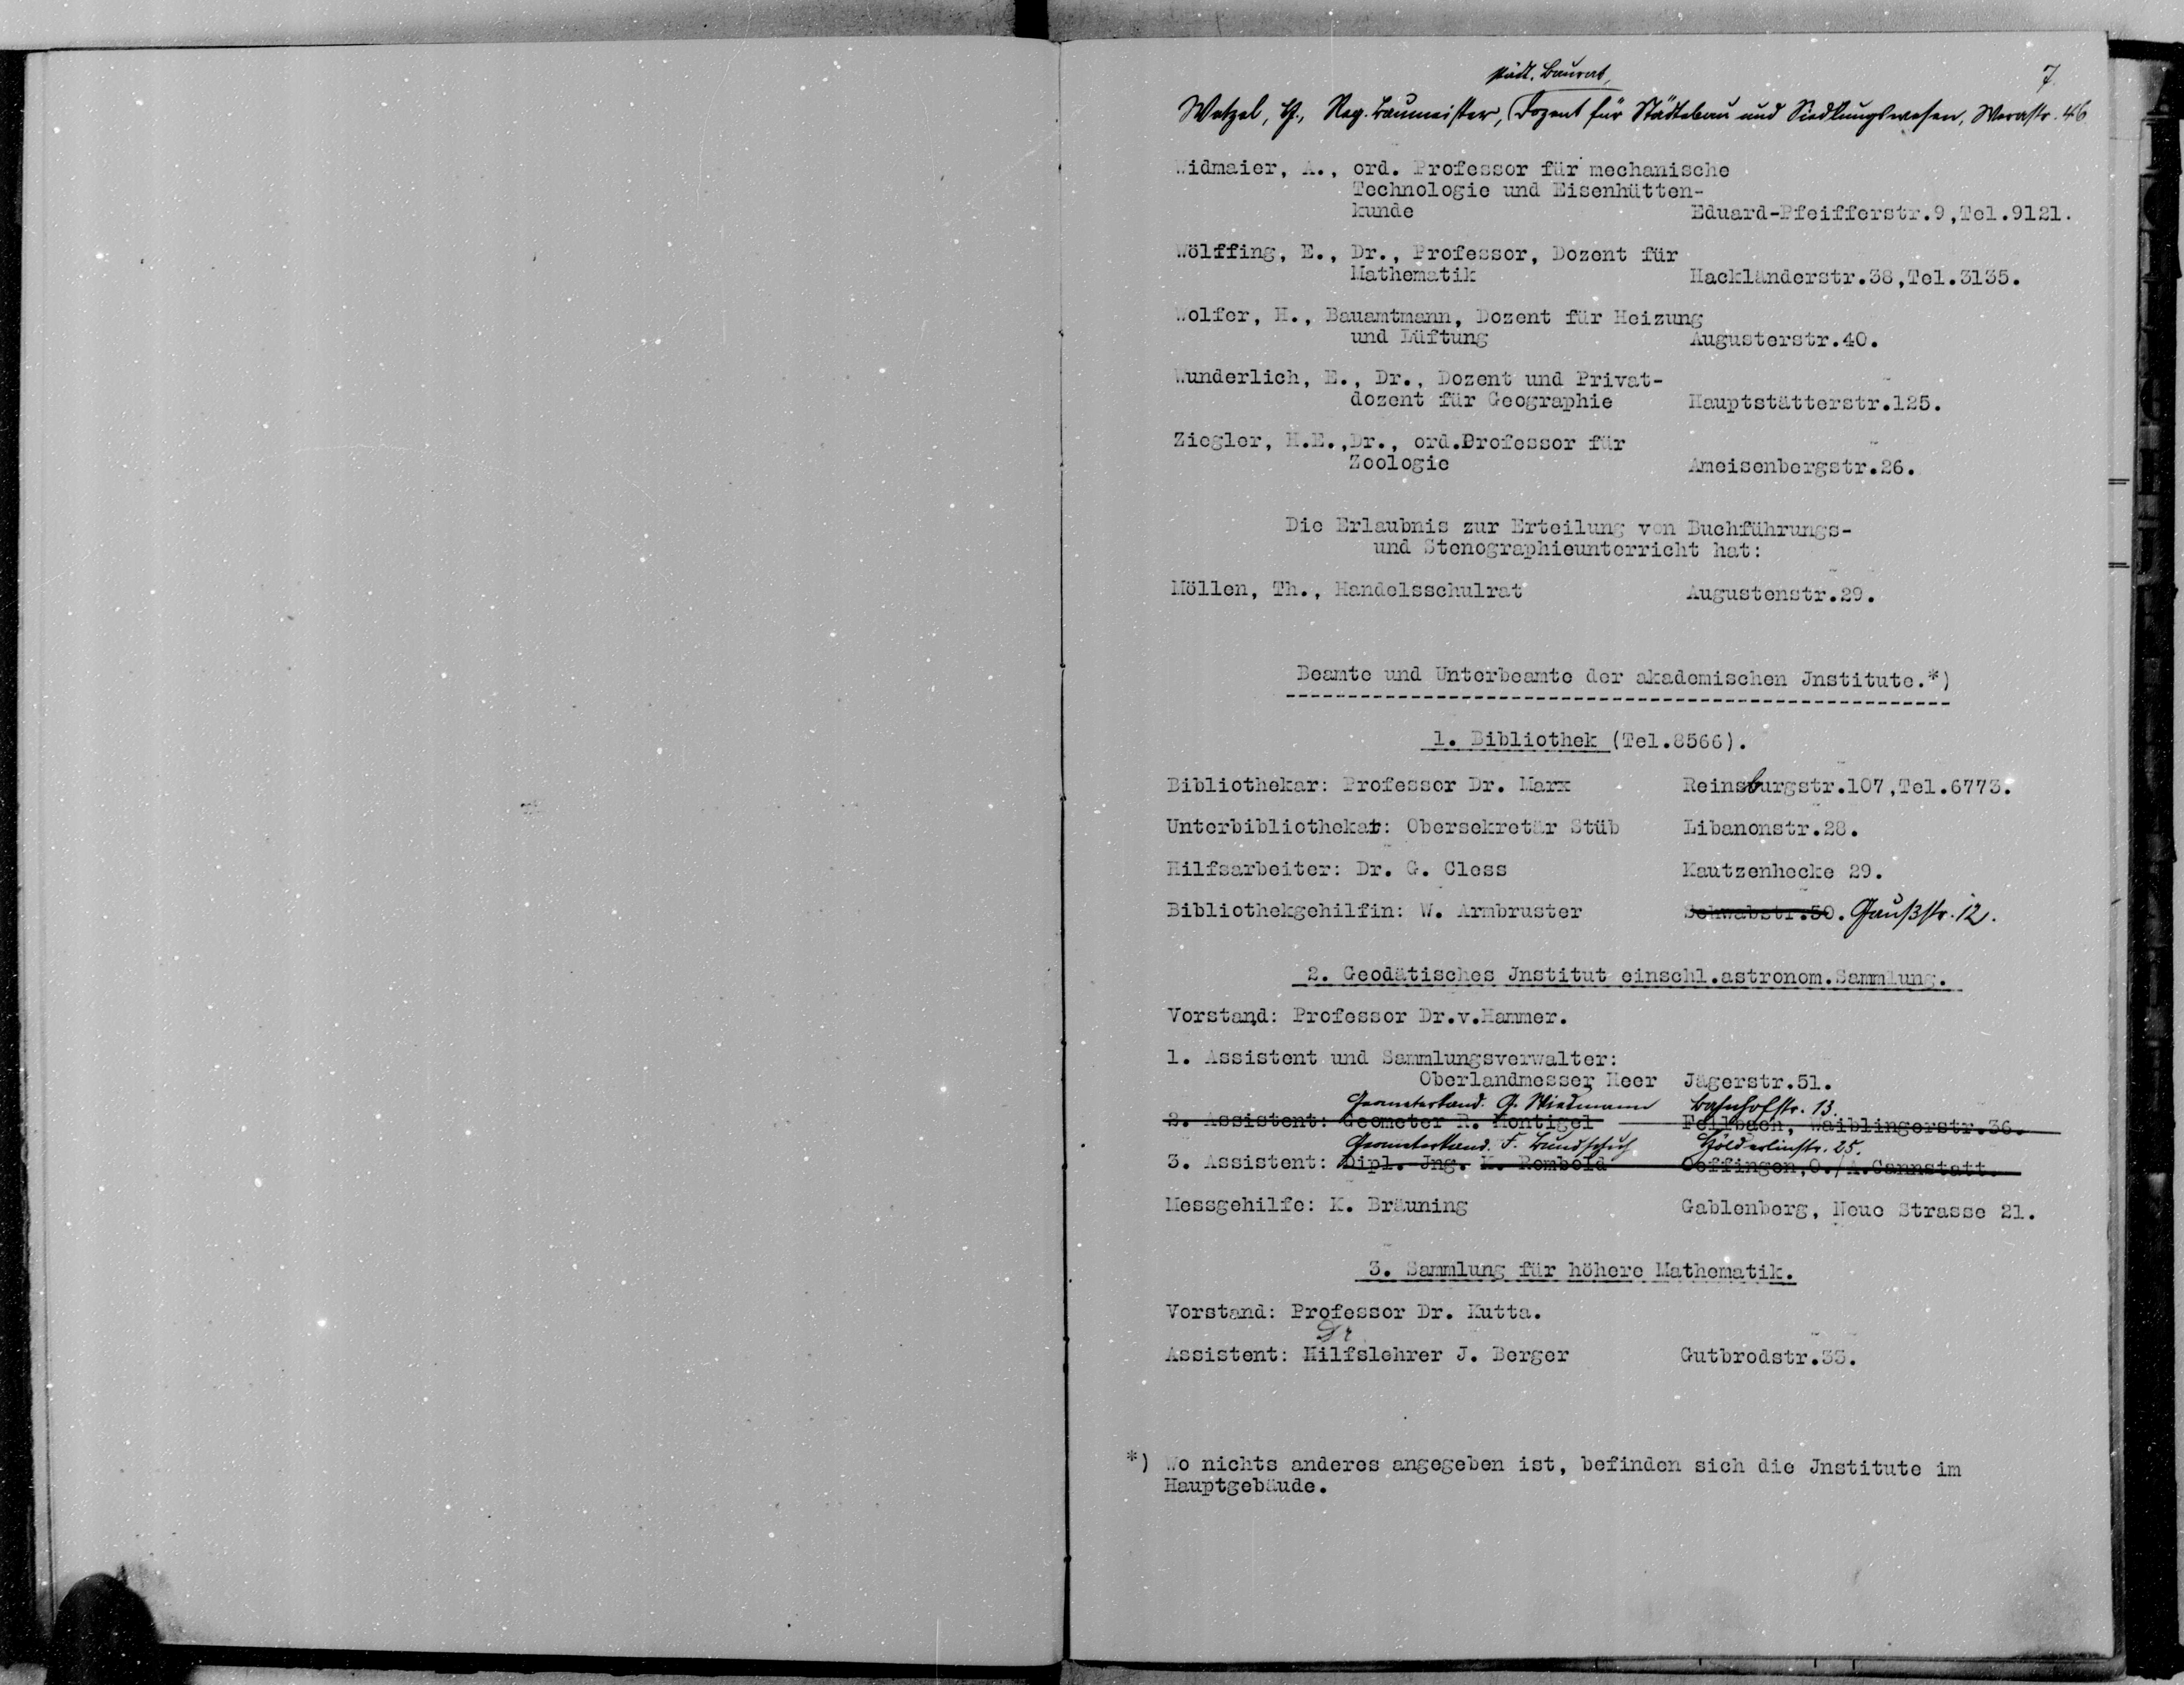 7.
städt. Baurat,
Wetzel, H., Reg. Baumeister, Dozent für Städtebau und Siedlungswesen, Werastr. 46
Widmaier, A., ord. Professor für mechanische
Technologie und Eisenhütten-
kunde Eduard-Pfeifferstr.9,Tel.9121.
Wölffing, E., Dr., Professor, Dozent für
Mathematik Hackländerstr.38,Tel.3135.
Wolfer, H., Bauamtmann, Dozent für Heizung
und Lüftung Augusterstr.40.
Wunderlich, E., Dr., Dozent und Privat-
dozent für Geographie Hauptstätterstr.125.
Ziegler, H.E.,Dr., ord.Professor für
Zoologie Ameisenbergstr.26.
Die Erlaubnis zur Erteilung von Buchführungs-
und Stenographieunterricht hat:
Möllen, Th., Handelsschulrat Augustenstr.29.
Beamte und Unterbeamte der akademischen Jnstitute.*)
1. Bibliothek (Tel.8566).
Bibliothekar: Professor Dr. Marx Reinsburgstr.107,Tel.6773.
Unterbibliothekar: Obersekretär Stüb Libanonstr.28.
Hilfsarbeiter: Dr. G. Cless Kautzenhecke 29.
Bibliothekgehilfin: W. Armbruster Schwabstr.50. Gaußstr. 12.
2. Geodätisches Jnstitut einschl.astronom.Sammlung.
Vorstand: Professor Dr.v.Hammer.
1. Assistent und Sammlungsverwalter:
Oberlandmesser Heer Jägerstr.51.
Geometerkand. G. Wiedmann Bahnhofstr. 13.
2. Assistent: Geometer R. Montigel Fellbach, Waiblingerstr.36.
Geometerkand. F. Bundschuh Hölderlinstr. 25.
3. Assistent: Dipl. Jng. K. Rembold Oeffingen,O./A.Cannstatt.
Messgehilfe: K. Bräuning Gablenberg, Neue Strasse 21.
3. Sammlung für höhere Mathematik.
Vorstand: Professor Dr. Kutta.
Dr
Assistent: Hilfslehrer J. Berger Gutbrodstr.33.
*) Wo nichts anderes angegeben ist, befinden sich die Jnstitute im
Hauptgebäude.